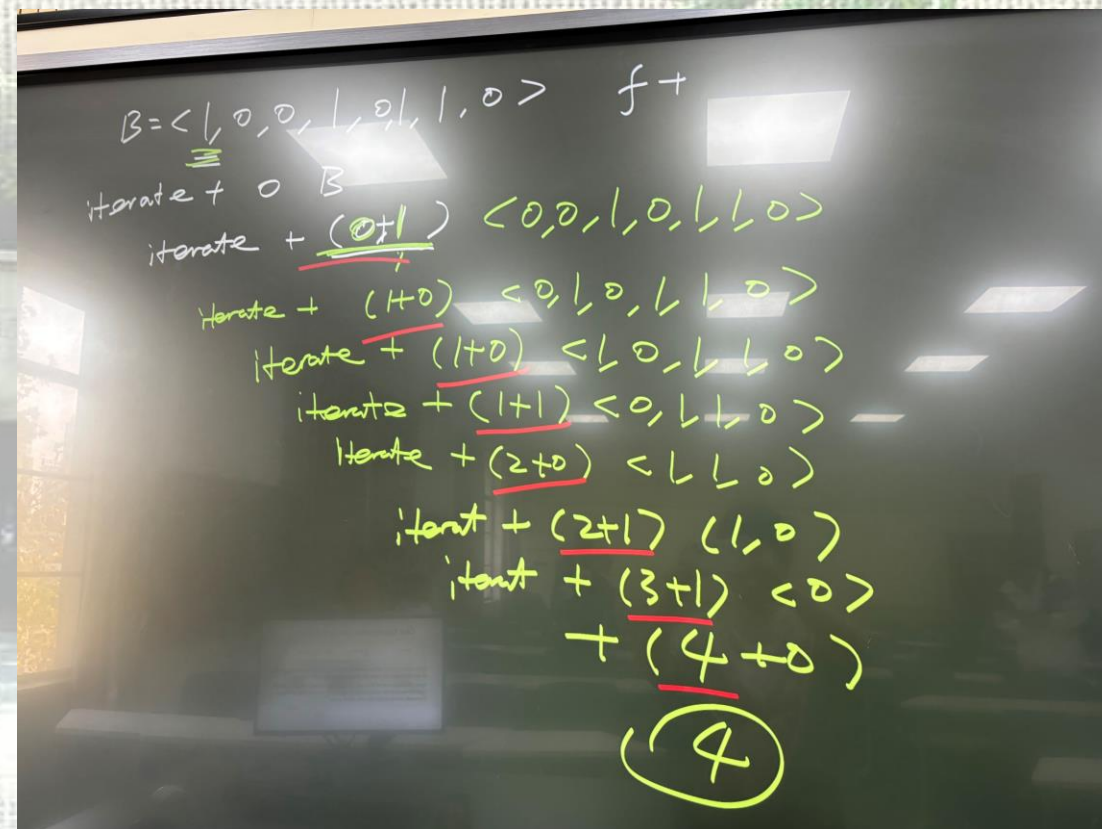 B=<1,0,0,1,0,1,1,0> f+
iterate + 0 B
iterate + (0+1) <0,0,1,0,1,1,0>
iterate + (1+0) <0,1,0,1,1,0>
iterate + (1+0) <1,0,1,1,0>
iterate + (1+1) <0,1,1,0>
iterate + (2+0) <1,1,0>
iterat + (2+1) (1,0)
iterat + (3+1) <0>
+ (4+0)
4